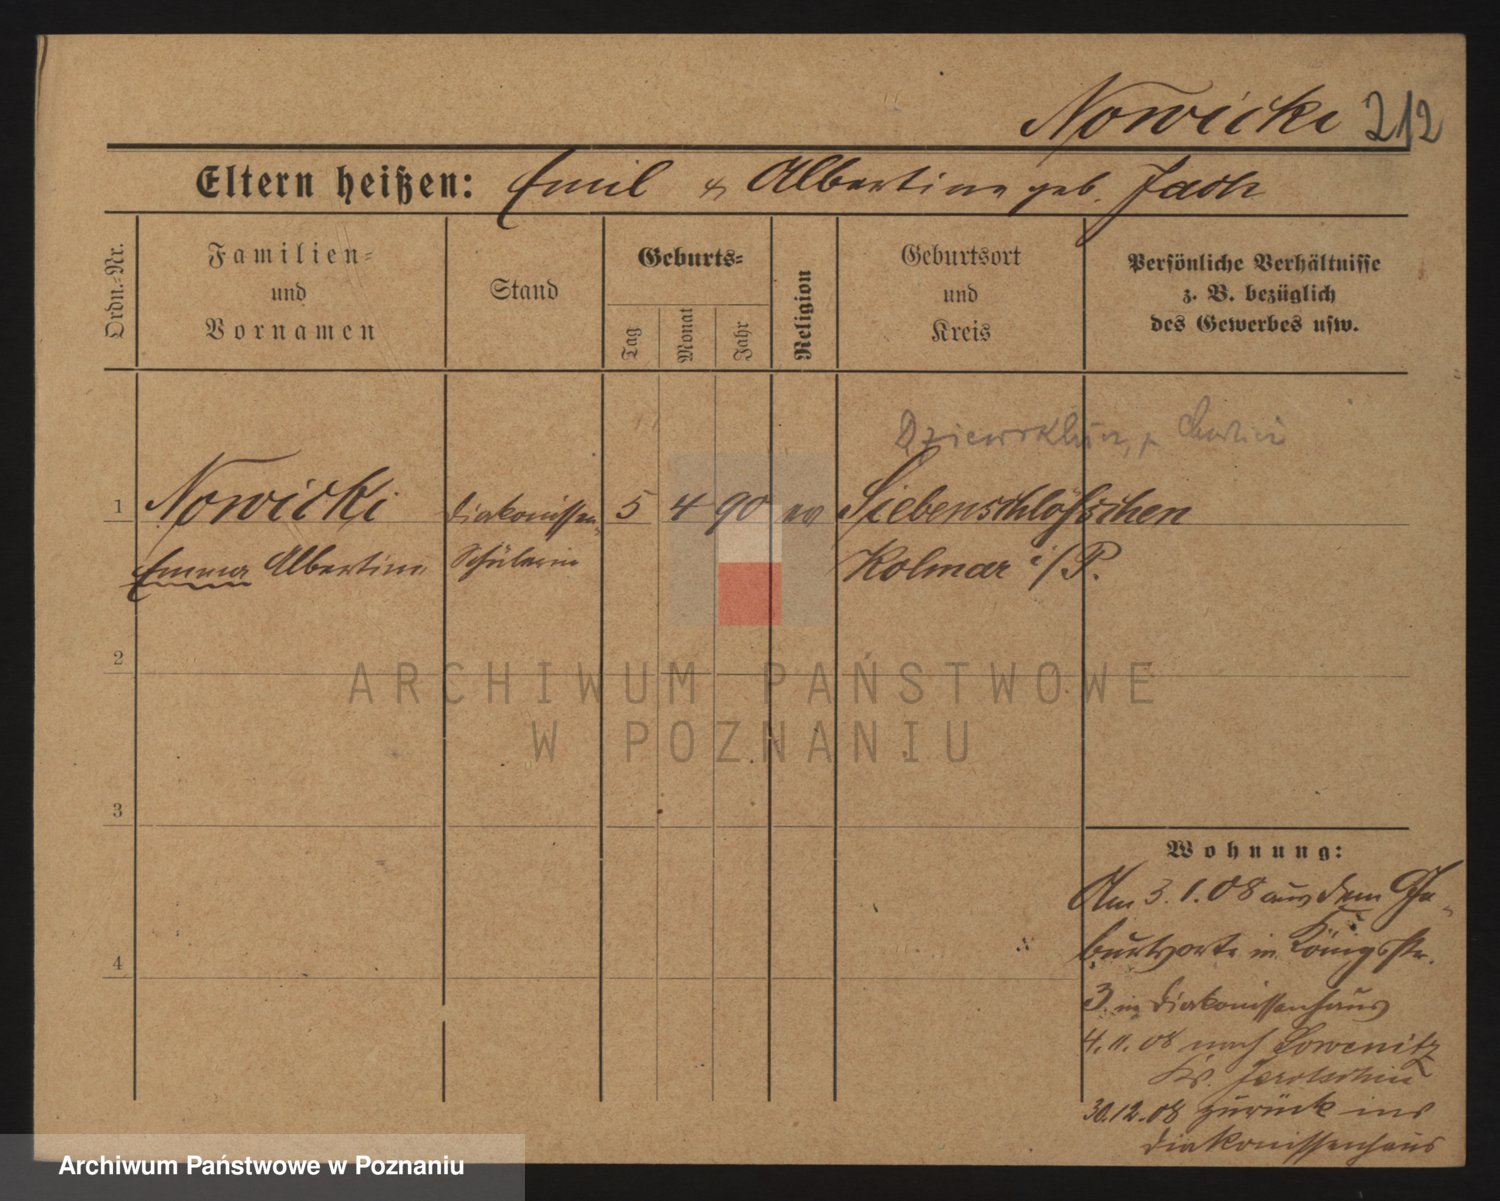 Nowicki 212
Eltern heißen: Emil & Albertine geb. Jach
Ordn.-Nr.
Familien-
und
Vornamen
Stand
Geburts-
Tag
Monat
Jahr
Religion
Geburtsort
und
Kreis
Persönliche Verhältnisse
z. B. bezüglich
des Gewerbes usw.
1 Nowicki Diakonissen- 5 4 90 ev Siebenschlößchen
Emma Albertine Schülerin Kolmar i/P.
2
3
4
Wohnung:
Am 3.1.08 aus dem Ge-
burtsorte in Königsstr.
3 in Diakonissenhaus
4.11.08 nach Lowenitz
Kr. Jarotschin
30.12.08 zurück ins
Diakonissenhaus
ARCHIWUM PAŃSTWOWE
W POZNANIU
Archiwum Państwowe w Poznaniu